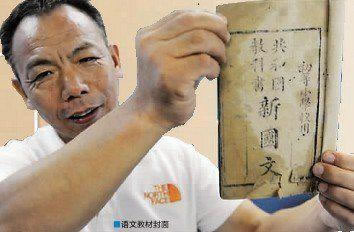 共和國
教科書
新國文
THE
NORTH
FACE
■语文教材封面